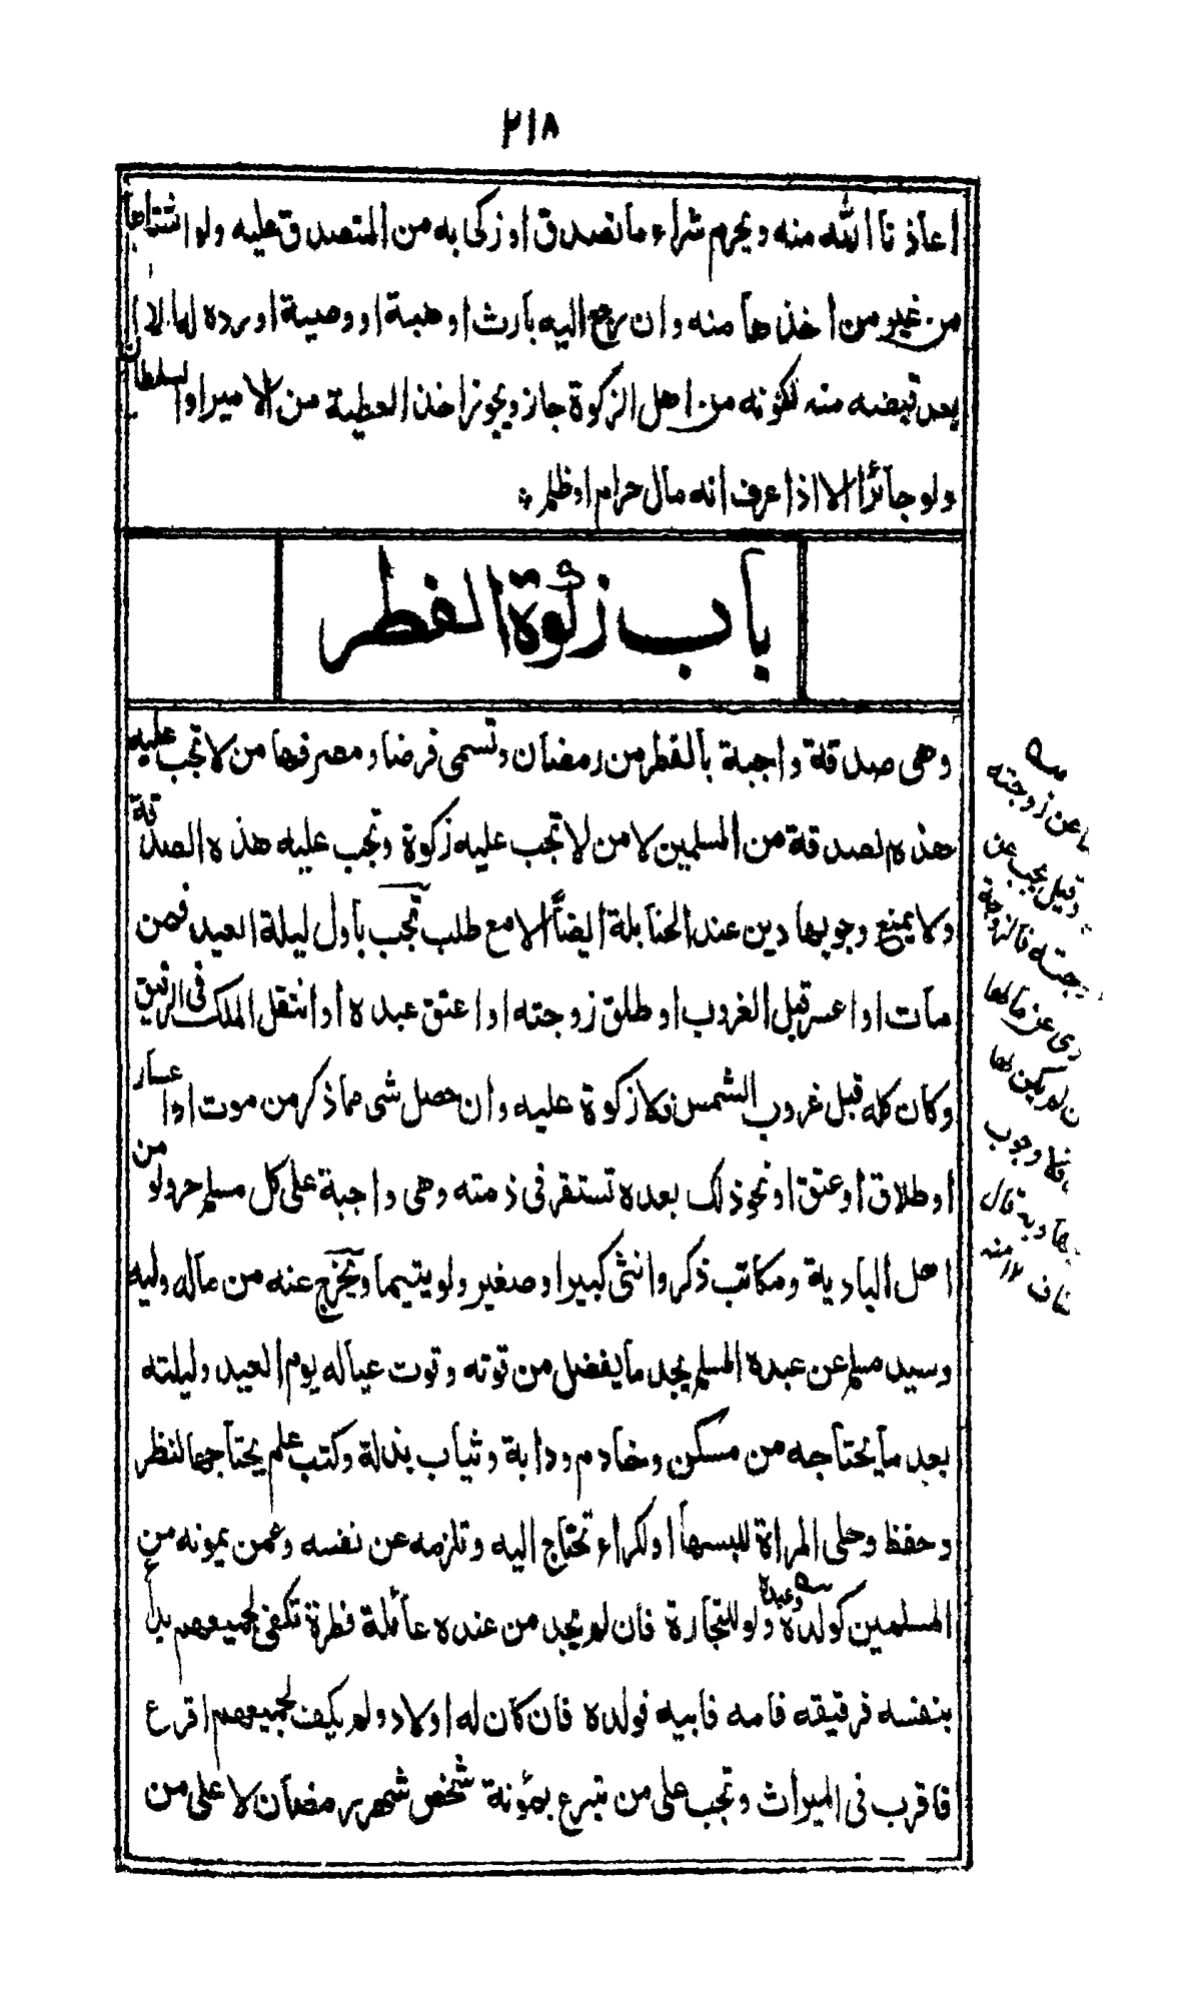 ٢١٨
اعاذنا الله منه ويحرم شراء ما تصدق او زكى به من المتصدق عليه ولو اشتراها
من غير من اخذها منه وان رجع اليه بارث او هبة او وصية او رده له الامام
بعد قبضه منه لكونه من اهل الزكوة جاز ويجوز اخذ العطية من الامير والسلطان
ولو جائرا الا اذا عرف انه مال حرام او ظلم
باب زكوة الفطر
وهى صدقة واجبة بالفطر من رمضان وتسمى فرضا ومصرفها من لا تجب عليه
هذه الصدقة من المسلمين لا من لا تجب عليه زكوة وتجب عليه هذه الصدقة
ولا يمنع وجوبها دين عند الحنابلة ايضاً الا مع طلب تجب باول ليلة العيد فمن
مات او اعسر قبل الغروب او طلق زوجته او اعتق عبده او انتقل الملك فى الرقيق
وكان كله قبل غروب الشمس فلا زكوة عليه وان حصل شى مما ذكر من موت او اعسار
او طلاق او عتق او نحو ذلك بعده تستقر فى ذمته وهى واجبة على كل مسلم حر ولو من
اهل البادية ومكاتب ذكر وانثى كبير او صغير ولو يتيما ويخرج عنه من ماله وليه
وسيد مسلم عن عبده المسلم يجد ما يفضل من قوته وقوت عياله يوم العيد وليلته
بعد ما يحتاجه من مسكن وخادم ودابة وثياب بذلة وكتب علم يحتاجها لنظر
وحفظ وحلى المراة للبسها او لكراء تحتاج اليه وتلزمه عن نفسه وعمن يمونه من
المسلمين كولده وعبده ولو للتجارة فان لم يجد من عنده عائلة فطرة تكفى لجميعهم بدأ
بنفسه فرقيقه فامه فابيه فولده فان كان له اولاد ولم يكف لجميعهم اقرع
فاقرب فى الميراث وتجب على من تبرع بمؤنة شخص شهر رمضان لا على من
عن زوجته
وقيل يجب عن
زوجته فالزوجة
عن مالها
لم يكن لها
فلا وجوب
وبه قال
١٢ منه